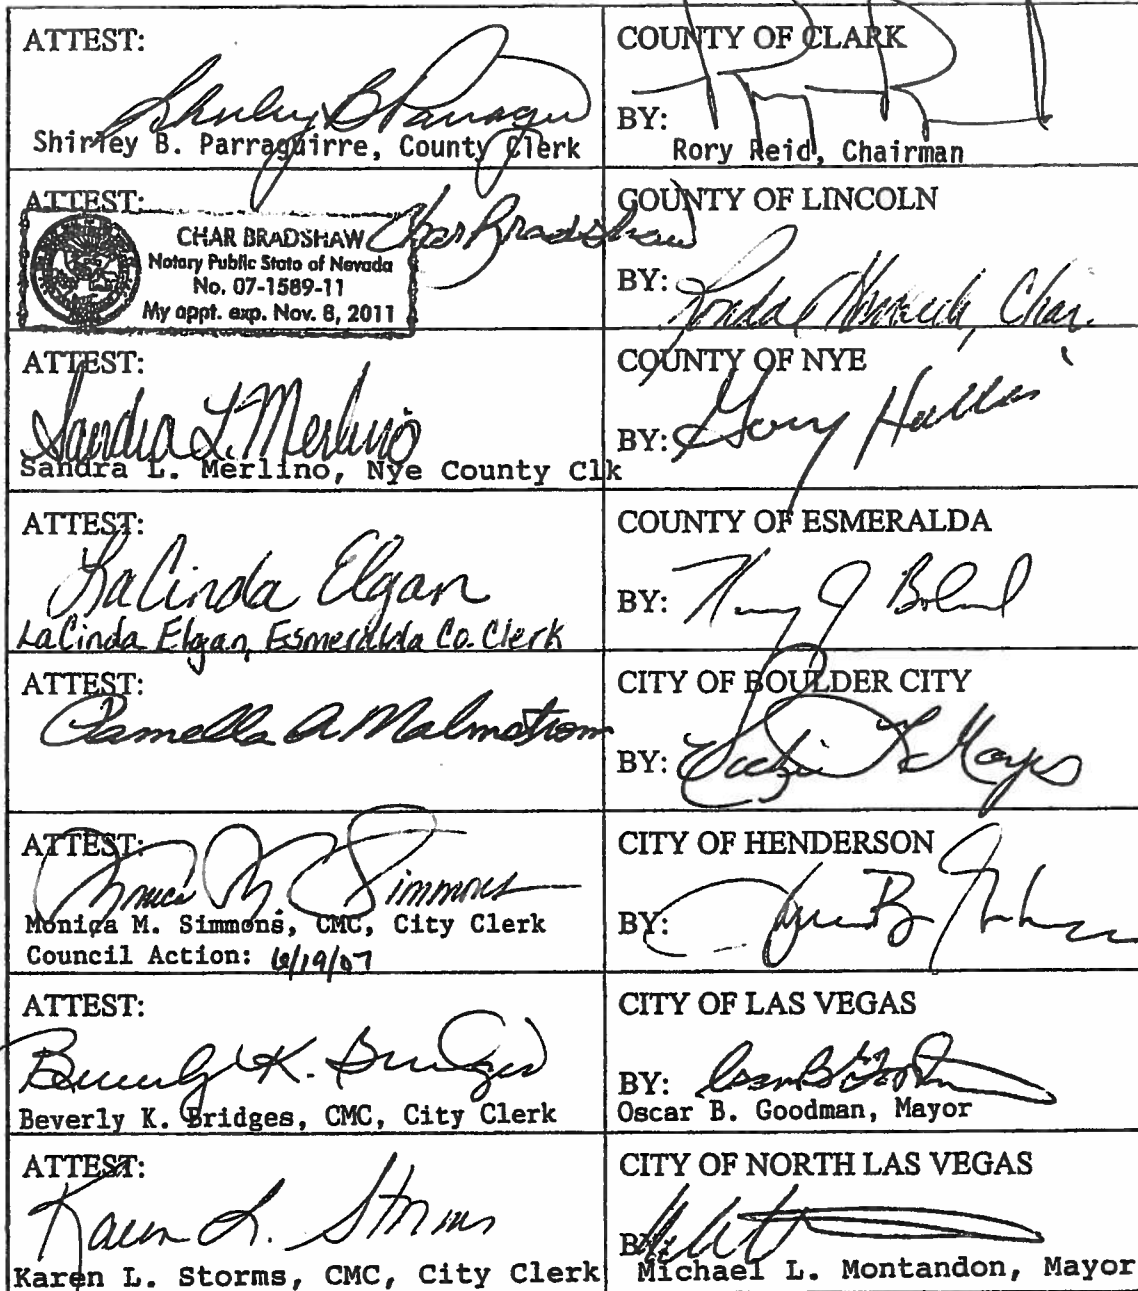 ATTEST:
Shirley B Parragui
Shirley B. Parraguirre, County Clerk
COUNTY OF CLARK
BY:
Rory Reid, Chairman
ATTEST:
Char Bradshaw
CHAR BRADSHAW
Notary Public State of Nevada
No. 07-1589-11
My appt. exp. Nov. 8, 2011
COUNTY OF LINCOLN
BY:
ATTEST:
Sandra L. Merlino
Sandra L. Merlino, Nye County Clk
COUNTY OF NYE
BY: Gary Hollis
ATTEST:
LaCinda Elgan
LaCinda Elgan, Esmeralda Co. Clerk
COUNTY OF ESMERALDA
BY:
ATTEST:
Pamella A Malmstrom
CITY OF BOULDER CITY
BY:
ATTEST:
Monica M Simmons
Monica M. Simmons, CMC, City Clerk
Council Action: 6/19/07
CITY OF HENDERSON
BY:
ATTEST:
Beverly K. Bridges
Beverly K. Bridges, CMC, City Clerk
CITY OF LAS VEGAS
BY: Oscar B Goodman
Oscar B. Goodman, Mayor
ATTEST:
Karen L. Storms
Karen L. Storms, CMC, City Clerk
CITY OF NORTH LAS VEGAS
BY:
Michael L. Montandon, Mayor